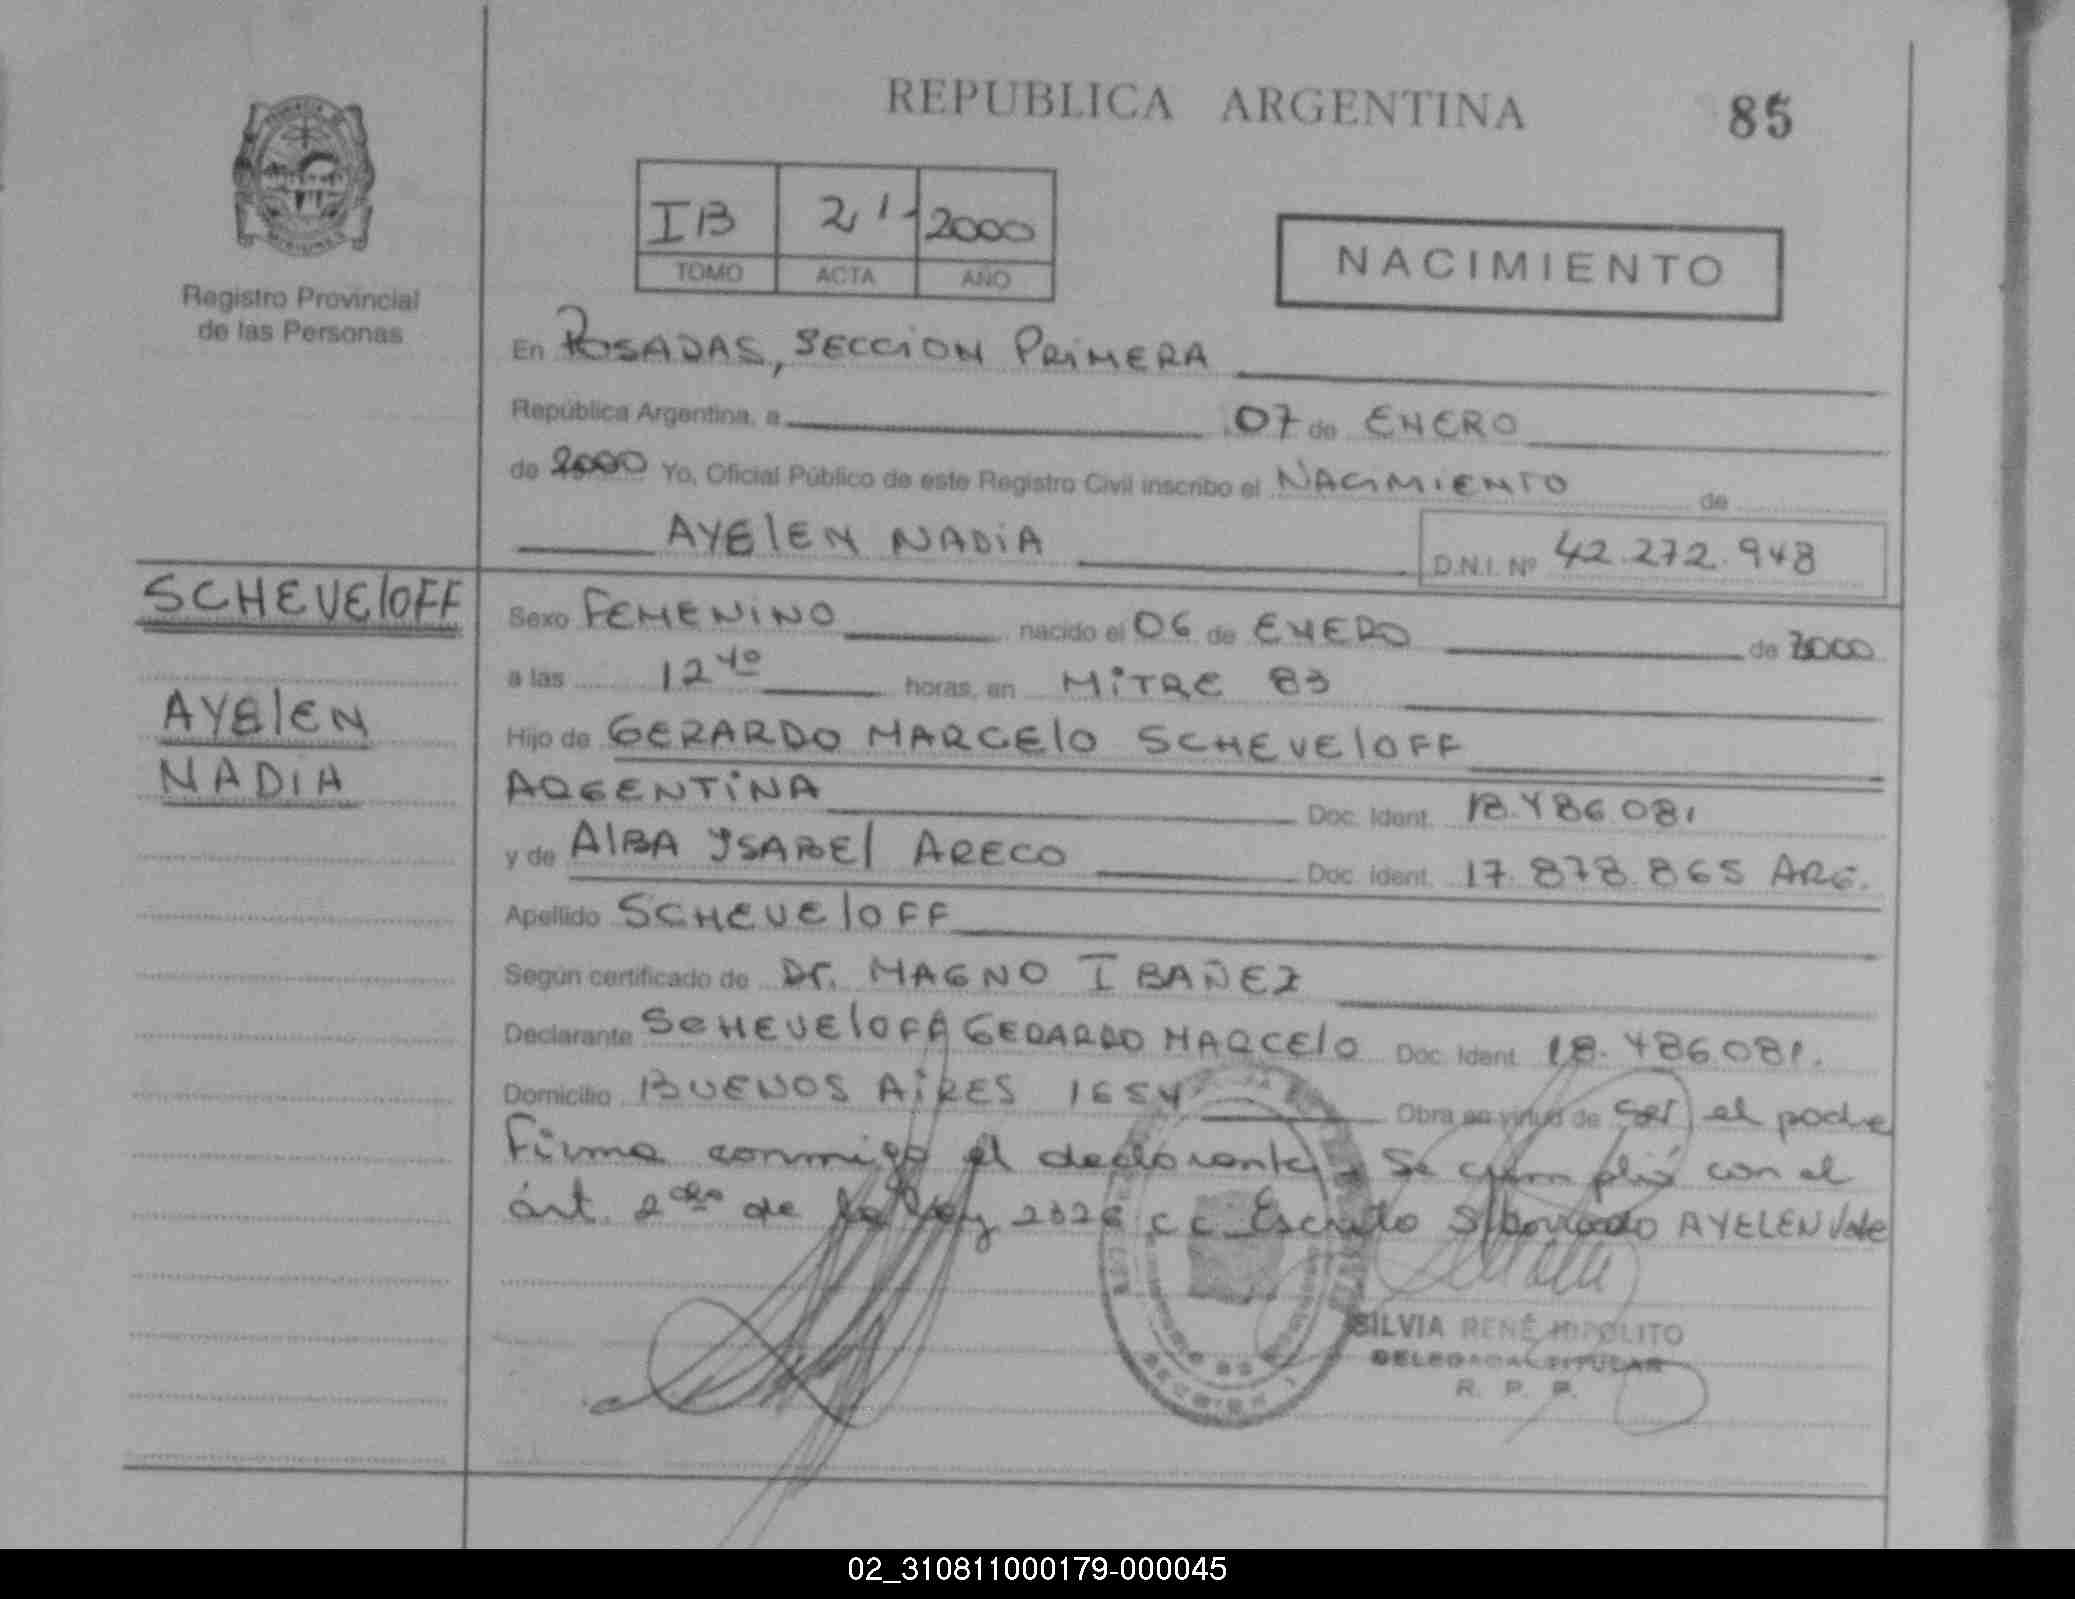 REPUBLICA ARGENTINA
85
IB 21 2000
TOMO ACTA AÑO
NACIMIENTO
Registro Provincial
de las Personas
En POSADAS, SECCION PRIMERA
República Argentina, a 07 de ENERO
de 2000 Yo, Oficial Público de este Registro Civil inscribo el NACIMIENTO de
AYELEN NADIA
D.N.I. Nº 42.272.948
SCHEVELOFF
AYELEN
NADIA
Sexo FEMENINO nacido el 06 de ENERO de 2000
a las 12 40 horas, en MITRE 83
Hijo de GERARDO MARCELO SCHEVELOFF
ARGENTINA Doc. Ident. 18.486.081
y de ALBA YSABEL ARECO Doc. Ident. 17.878.865 ARG.
Apellido SCHEVELOFF
Según certificado de Dr. MAGNO IBAÑEZ
Declarante SCHEVELOFF GERARDO MARCELO Doc. Ident. 18.486.081.
Domicilio BUENOS AIRES 1654 Obra en virtud de ser el padre
Firma conmigo el declarante, Se cumplió con el
árt. 2do de la ley 2026 c.c. Escrito s/borrado AYELEN Vale
SILVIA RENÉ HIPOLITO
DELEGADA TITULAR
R. P. P.
02_310811000179-000045